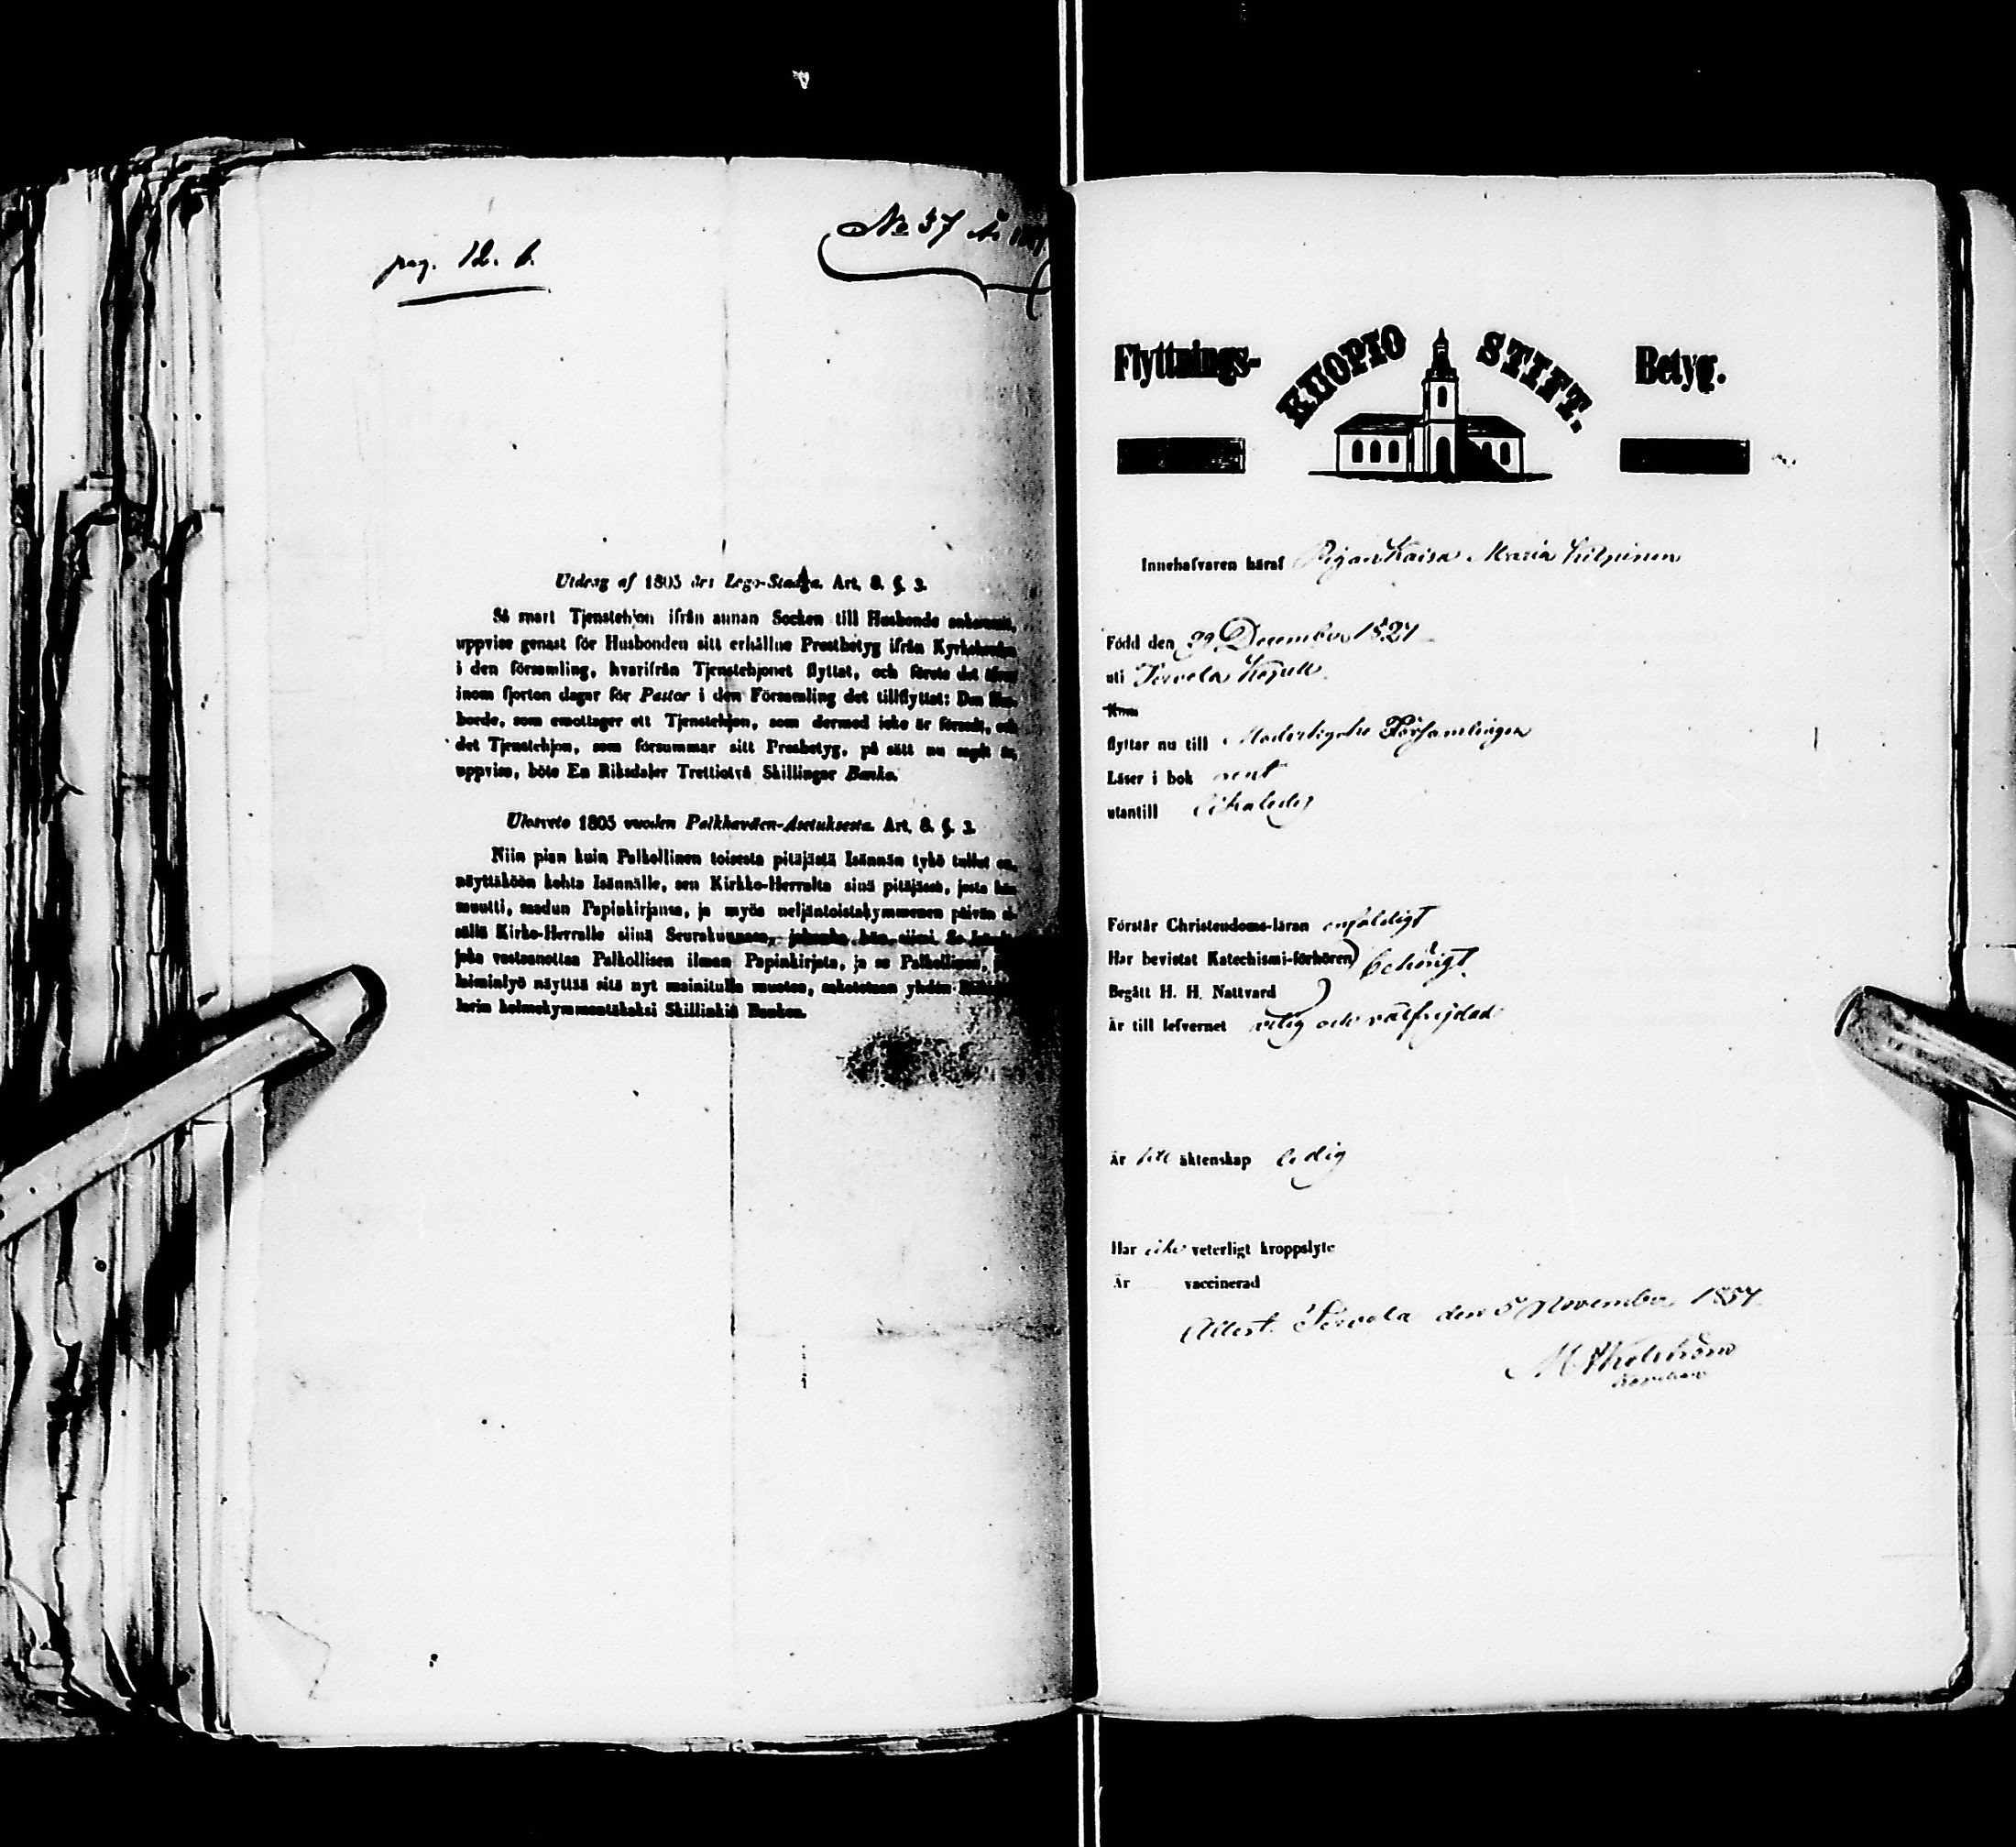 pag. 12. b.
No 37
Utdrag af 1805 års Lego-Stadga. Art. 8. §. 3.
Så snart Tjenstehjon ifrån annan Socken till Husbonde ankommit,
uppvise genast för Husbonden sitt erhållne Prestbetyg ifrån Kyrkoherden
i den församling, hvarifrån Tjenstehjonet flyttat, och förete det
inom fjorton dagar för Pastor i den Församling det tillflyttat: Den Hus-
bonde, som emottager ett Tjenstehjon, som dermed icke är försedt, och
det Tjenstehjon, som försummar sitt Presbetyg, på sätt nu sagdt är,
uppvisa, böte En Riksdaler Trettiotvå Skillingar Banko.
Ulosveto 1805 vuoden Palkkaväen-Asetuksesta. Art. 8. §. 3.
Niin pian kuin Palkollinen toisesta pitäjästä Isännän tykö tullut on,
näyttäköön kohta Isännälle, sen Kirkko-Herralta siinä pitäjässä, josta hän
muutti, saadun Papinkirjansa, ja myös neljäntoistakymmenen päivän si-
sällä Kirko-Herralle siinä Seurakunnassa, johonka hän siirsi. Se
joka vastaanottaa Palkollisen ilman Papinkirjata, ja se Palkollinen,
laiminlyö näyttää sitä nyt mainitulla muotoa, sakotetaan yhden
larin kolmekymmentäkaksi Skillinkiä Bankoa.
Flyttnings- KUOPIO STIFT. Betyg.
Innehafvaren häraf Pigan Kaisa Maria Kilpinen
Född den 29 December 1827
uti Tervola Kapell
flyttar nu till Moderkyrko Församlingen
Läser i bok rent
utantill likaledes
Förstår Christendoms-läran enfaldigt
Har bevistat Katechismi-förhören behörigt
Begått H. H. Nattvard
Är till lefvernet ärlig och välfrejdad
Är till äktenskap ledig
Har icke veterligt kroppslyte
Är vaccinerad
Attest. Tervola den 5 November 1857